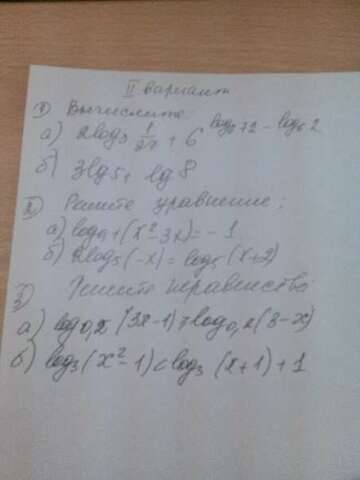 II вариант
1) Вычислите:
а) 2log₃ 1/27 + 6^(log₆72 - log₆2)
б) 3lg5 + lg8
2) Решите уравнение:
а) (x² - 3x) = -1
б) 2log₅(-x) = log₅(x+2)
3) неравенство
а) log₀,₂(3x-1) ≥ log₀,₂(3-x)
б) log₃(x²-1) < log₃(x+1)+1